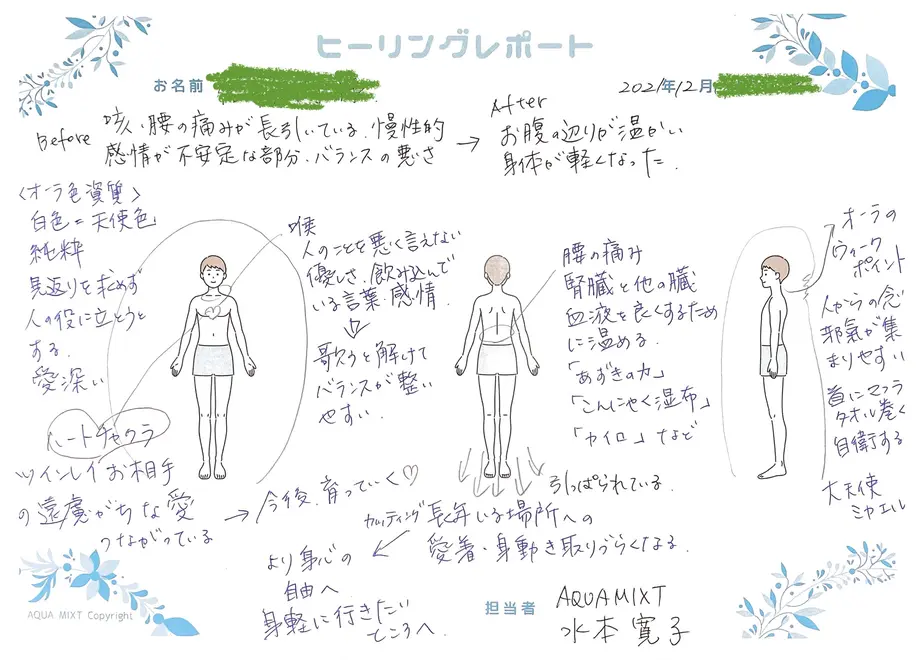 ヒーリングレポート
お名前
2021年12月
Before
咳、腰の痛みが長引いている。慢性的
感情が不安定な部分。バランスの悪さ
→
After
お腹の辺りが温かい
身体が軽くなった。
〈オーラ色資質〉
白色=天使色
純粋
見返りを求めず
人の役に立とうと
する。
愛深い
ハートチャクラ
ツインレイお相手
の遠慮がちな愛
つながっている
→ 今後、育っていく♡
喉
人のことを悪く言えない
優しさ、飲み込んで
いる言葉・感情。
歌うと解けて
バランスが整い
やすい。
腰の痛み
腎臓と他の臓
血液を良くするため
に温める。
「あずきの力」
「こんにゃく湿布」
「カイロ」など
引っぱられている。
カッティング
長年いる場所への
愛着・身動き取りづらくなる。
より身心の
自由へ
身軽に行きたい
ところへ。
オーラの
ウィーク
ポイント
人からの念
邪氣が集
まりやすい
首にマフラ
タオル巻く
自衛する
大天使
ミカエル
担当者
AQUA MIXT
水本寛子
AQUA MIXT Copyright